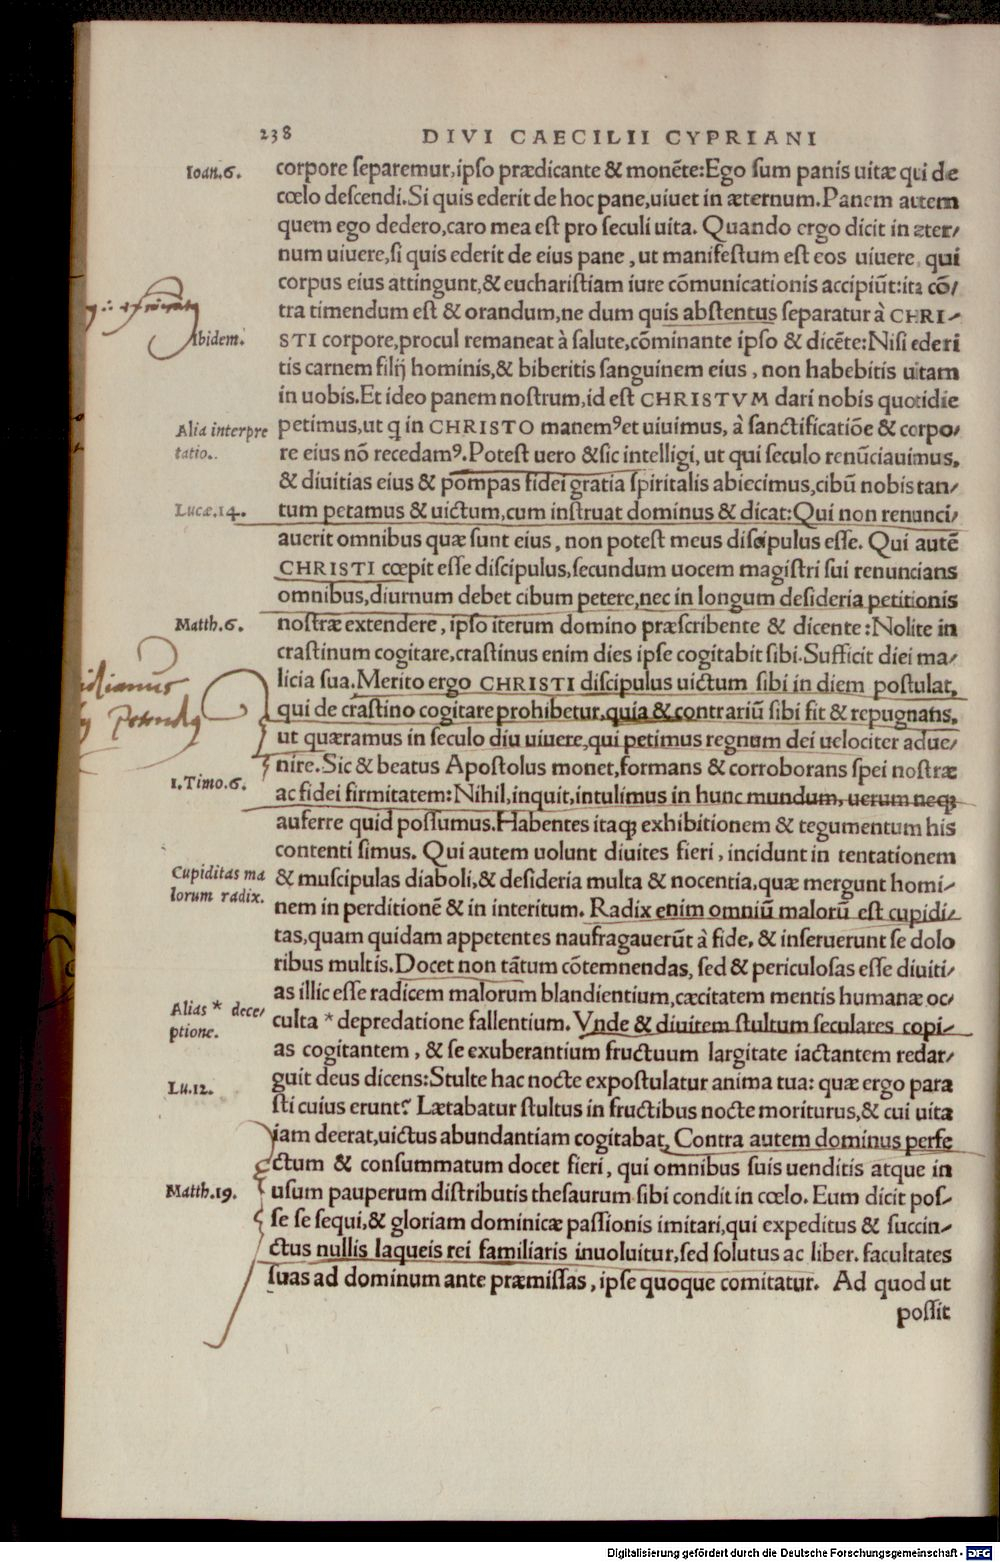 238 DIVI CAECILII CYPRIANI
Ioan.6.
corpore ſeparemur,ipſo prædicante & monēte:Ego ſum panis uitæ qui de
cœlo deſcendi.Si quis ederit de hoc pane,uiuet in æternum.Panem autem
quem ego dedero,caro mea est pro ſeculi uita. Quando ergo dicit in æter/
num uiuere,ſi quis ederit de eius pane, ut manifeſtum eſt eos uiuere, qui
corpus eius attingunt,& euchariſtiam iure cōmunicationis accipiūt:ita cō/
tra timendum eſt & orandum,ne dum quis abſtentus ſeparatur à CHRI-
Ibidem.
STI corpore,procul remaneat à ſalute,cōminante ipſo & dicēte:Niſi ederi
tis carnem filij hominis,& biberitis ſanguinem eius, non habebitis uitam
in uobis.Et ideo panem noſtrum,id eſt CHRISTVM dari nobis quotidie
Alia interpre
tatio.
petimus,ut q̄ in CHRISTO manemꝰet uiuimus, à ſanctificatiōe & corpo/
re eius nō recedamꝰ.Poteſt uero &ſic intelligi, ut qui ſeculo renūciauimus,
& diuitias eius & pompas fidei gratia ſpiritalis abiecimus,cibū nobis tan/
Lucæ.14.
tum petamus & uictum,cum inſtruat dominus & dicat:Qui non renunci/
auerit omnibus quæ ſunt eius, non poteſt meus diſcipulus eſſe. Qui autē
CHRISTI cœpit eſſe diſcipulus,ſecundum uocem magiſtri ſui renuncians
omnibus,diurnum debet cibum petere,nec in longum deſideria petitionis
Matth.6.
noſtræ extendere, ipſo iterum domino præſcribente & dicente:Nolite in
craſtinum cogitare,craſtinus enim dies ipſe cogitabit ſibi.Sufficit diei ma/
licia ſua.Merito ergo CHRISTI diſcipulus uictum ſibi in diem poſtulat,
qui de craſtino cogitare prohibetur,quia & contrariū ſibi fit & repugnans,
ut quæramus in ſeculo diu uiuere,qui petimus regnum dei uelociter adue/
nire.Sic & beatus Apoſtolus monet,formans & corroborans ſpei noſtræ
1.Timo.6.
ac fidei firmitatem:Nihil,inquit,intulimus in hunc mundum, uerum neqꝫ
auferre quid poſſumus.Habentes itaqꝫ exhibitionem & tegumentum his
contenti ſimus. Qui autem uolunt diuites fieri, incidunt in tentationem
Cupiditas ma
lorum radix.
& muſcipulas diaboli,& deſideria multa & nocentia,quæ mergunt homi/
nem in perditionē & in interitum. Radix enim omniū malorū eſt cupidi/
tas,quam quidam appetentes naufragauerūt à fide, & inſeruerunt ſe dolo
ribus multis.Docet non tātum cōtemnendas, ſed & periculoſas eſſe diuiti/
as illic eſſe radicem malorum blandientium,cæcitatem mentis humanæ oc/
Alias * dece/
ptione.
culta * depredatione fallentium. Vnde & diuitem ſtultum ſeculares copi-
as cogitantem, & ſe exuberantium fructuum largitate iactantem redar/
guit deus dicens:Stulte hac nocte expoſtulatur anima tua: quæ ergo para
Lu.12.
ſti cuius erunt? Lætabatur ſtultus in fructibus nocte moriturus,& cui uita
iam deerat,uictus abundantiam cogitabat, Contra autem dominus perfe
ctum & conſummatum docet fieri, qui omnibus ſuis uenditis atque in
Matth.19.
uſum pauperum diſtributis theſaurum ſibi condit in cœlo. Eum dicit poſ-
ſe ſe ſequi,& gloriam dominicæ paſſionis imitari,qui expeditus & ſuccin-
ctus nullis laqueis rei familiaris inuoluitur,ſed ſolutus ac liber. facultates
ſuas ad dominum ante præmiſſas, ipſe quoque comitatur. Ad quod ut
poſſit
Digitalisierung gefördert durch die Deutsche Forschungsgemeinschaft - DFG